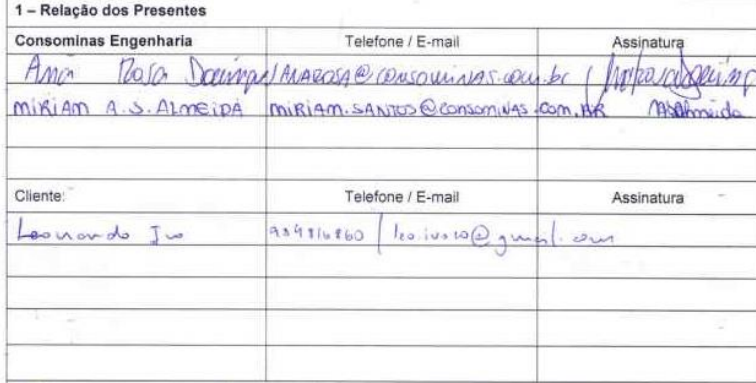 1 – Relação dos Presentes
Consominas Engenharia Telefone / E-mail Assinatura
Ana Rosa ANAROSA@consominas.com.br
MIRIAM A. S. ALMEIDA MIRIAM.SANTOS@consominas.com.BR MASAlmeida
Cliente: Telefone / E-mail Assinatura
Leonardo